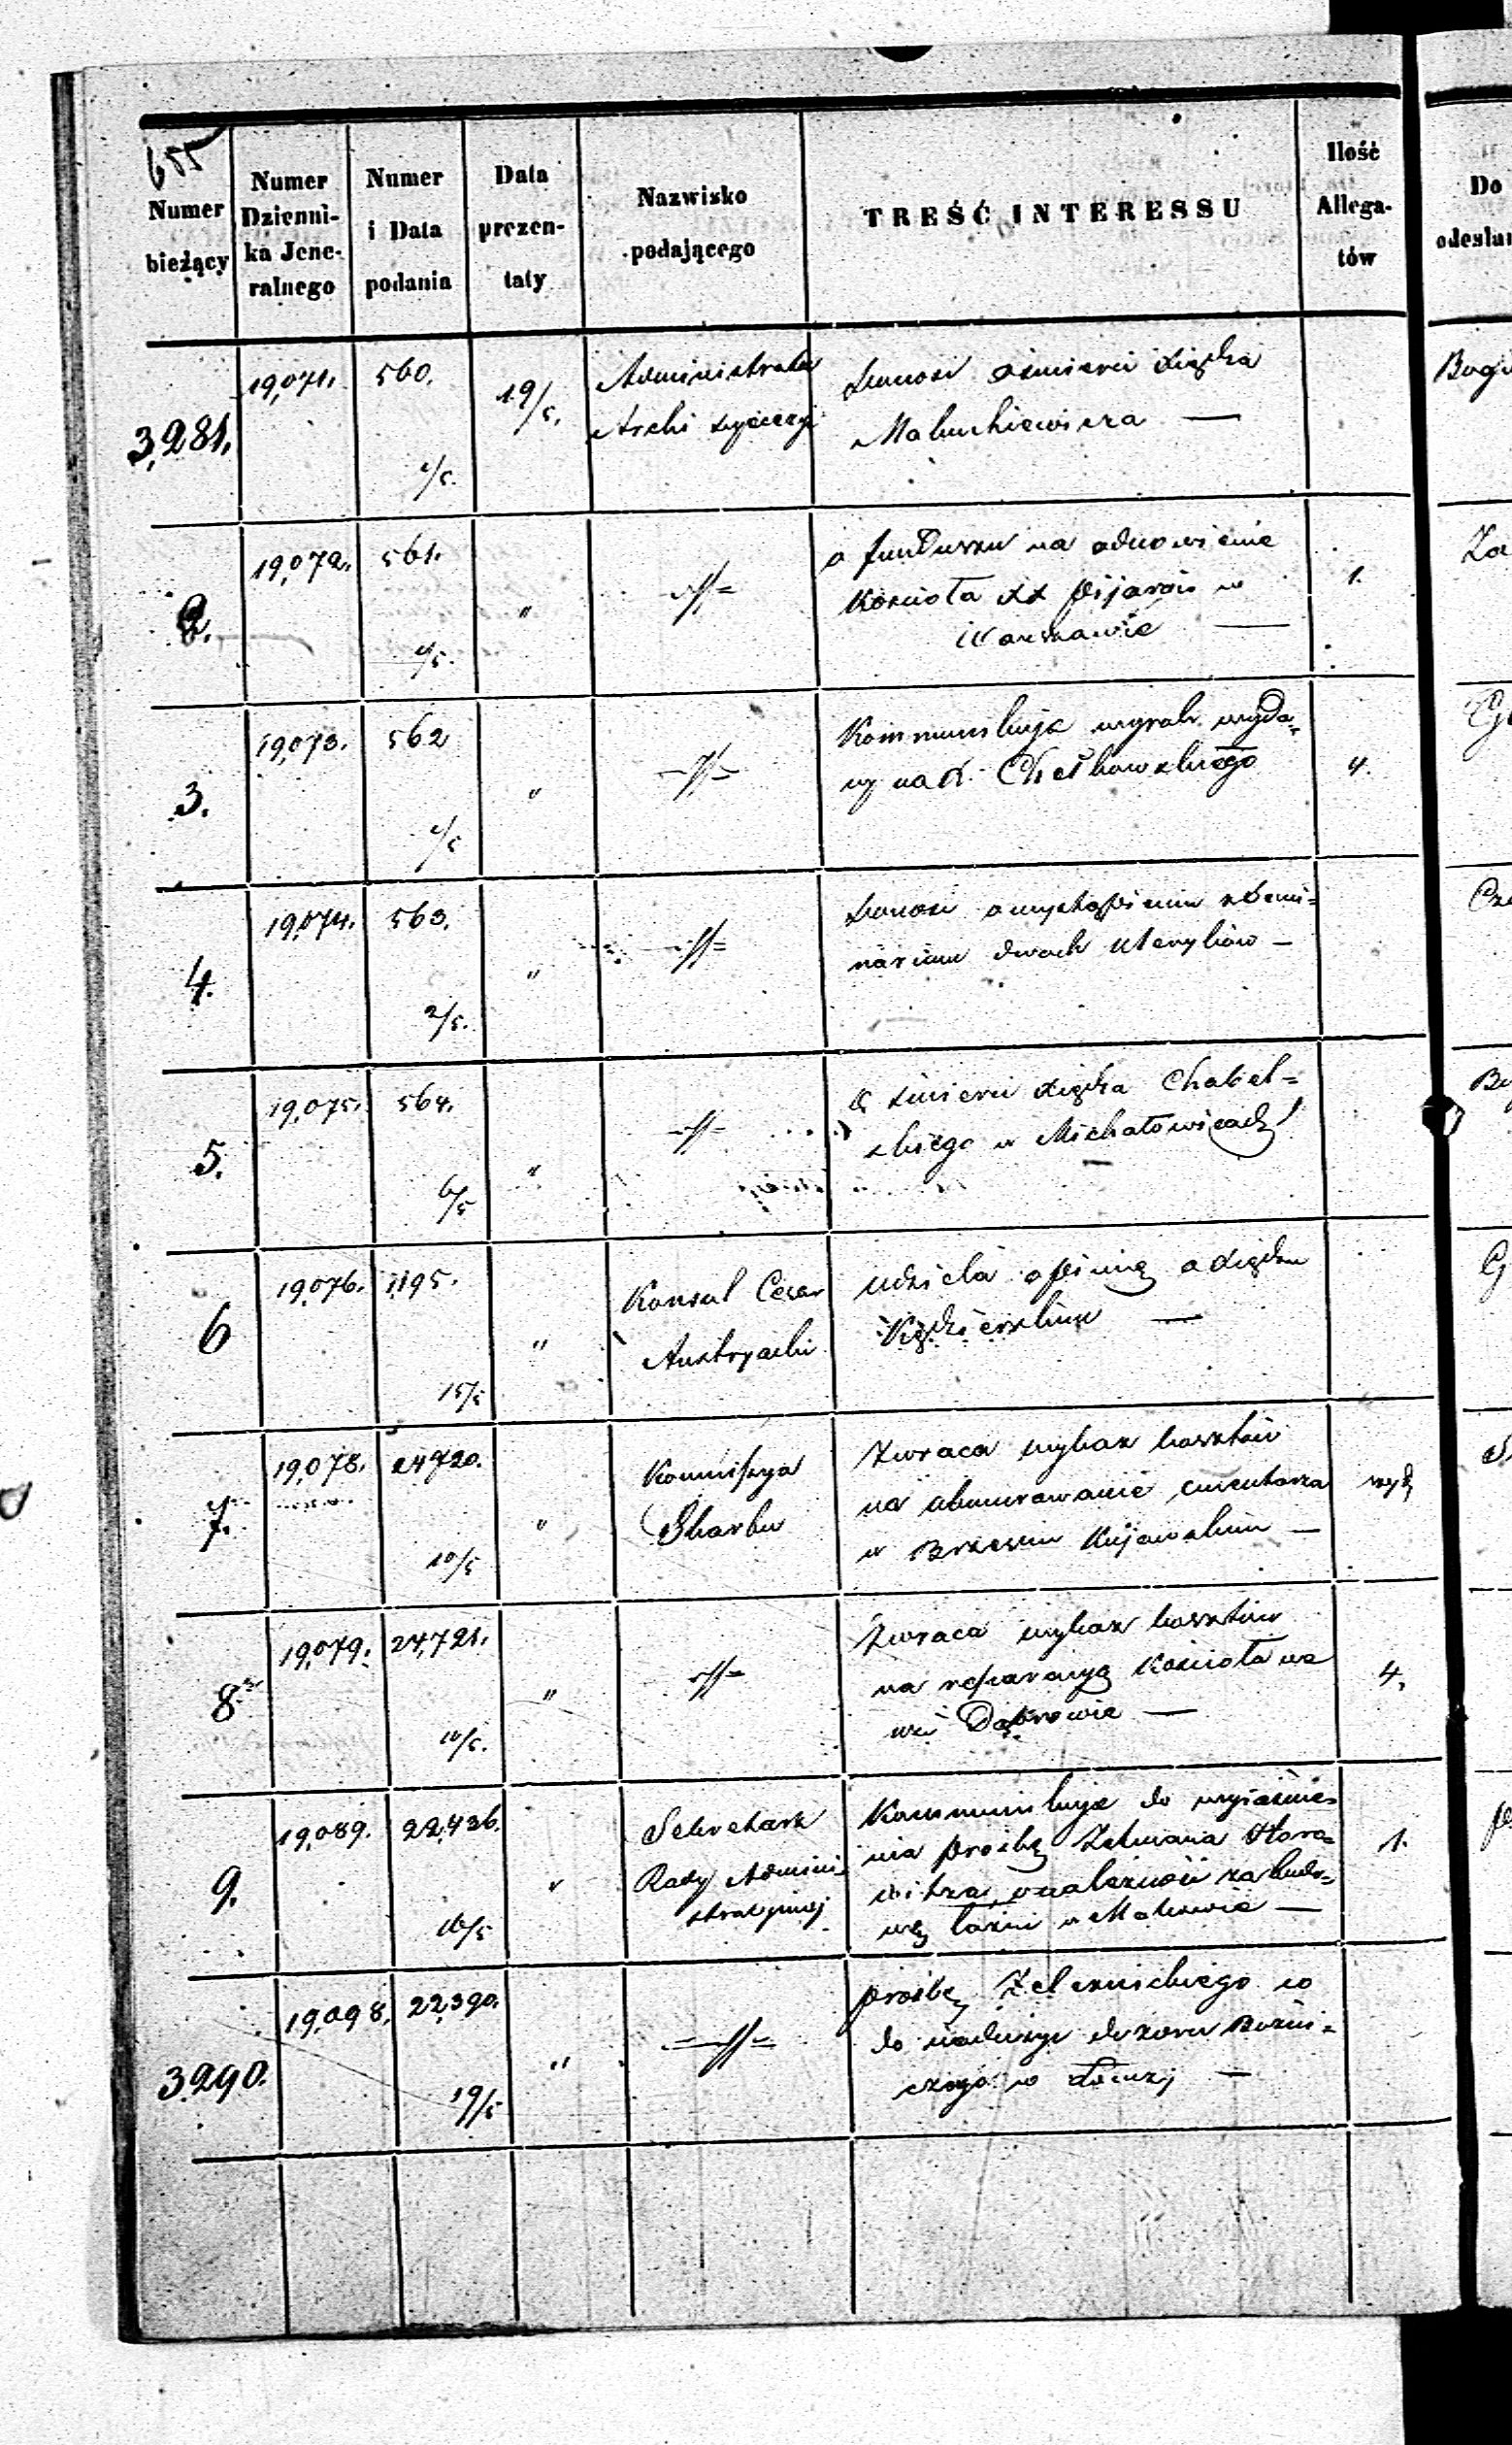 655
Numer bieżący
Numer Dzienni-ka Jene-ralnego
Numer i Data podania
Data prezen-taty
Nazwisko podającego
TREŚĆ INTERESSU
Ilość Allega-tów
Do odesłan
3,281.
19,071.
560.
1/5.
19/5.
Administrator
Archi dyecezyi
donosi o śmierci Xiędza
—
2.
19,072.
561.
4/5.
"
-//-
o funduszu na odnowienie
Kościoła XX Pijarów w
Warszawie —
1.
Za
3.
19,073.
562
"
-//-
Kommunikuje wyrok wyda-
ny na X.
4.
4.
19,074.
563.
2/5.
"
-//-
donosi o wystąpieniu z Semi=
narium dwóch kleryków —
5.
19,075.
564.
6/5
"
-//-
o śmierci Xiędza Chabel=
skiego w Michałowicach
6
19,076.
1,195.
15/5
"
Konsul Cesar
Austryacki
udziela opinię o Xiędzu
Kędzierskim —
G
7.
19,078.
24720.
10/5
"
Kommissya
Skarbu
Zwraca wykaz kosztów
na obmurowanie cmentarza
w Brześciu Kujawskim —
8
19,079.
24,721.
10/5.
"
-//-
Zwraca wykaz kosztów
na reparacyą Kościoła we
wsi Dąbrowie —
4.
9.
19,089.
22,436.
16/5
"
Sekretarz
Rady Admini-
stracyjnej
Kommunikuje do wyjaśnie-
nia prośbę Zelmana
o należność za budo-
wę łaźni w Makowie —
1.
3290.
19,098.
22,390.
19/5
"
-//-
prośbę Zeleznickiego co
do nadużyć dozoru Bożni-
czego w Łomży —